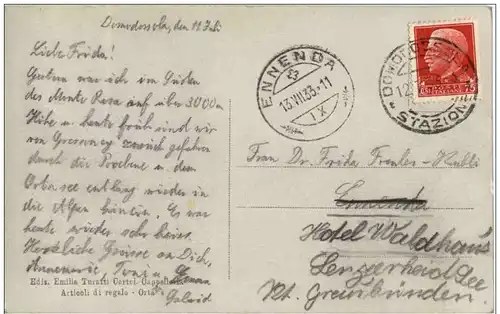 Domodossola, den 11. Juli
Liebe Frida!
Gestern war ich im Süden
des Monte Rosa auf über 3000m
Höhe u. heute früh sind wir
von Gressoney zurück gefahren
durch die Poebene u. dem
Ortasee entlang wieder in
die Alpen hinein. Es war
heute wieder sehr heiss.
Herzliche Grüsse an Dich,
Annemarie
Ediz. Emilia Turatti Cartol. Cappelleria
Articoli di regalo - Orta
ENNENDA
13.VII.33-11
IX
DOMODOSSOLA
STAZION
75
Frau Dr. Frida
Ennenda
Hotel Waldhaus
Lenzerheide See
Kt. Graubünden